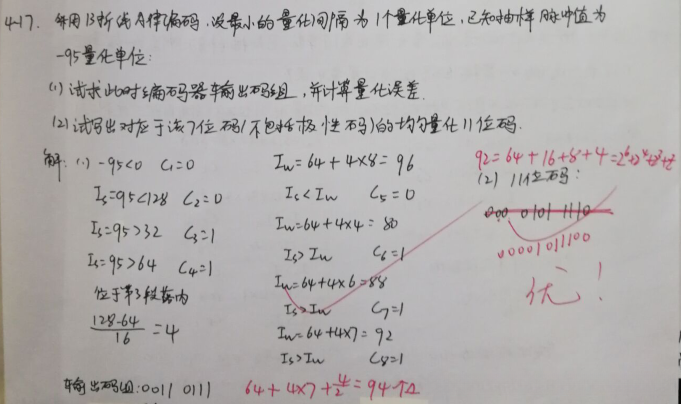 4-17. 采用13折线A律编码,设最小的量化间隔为1个量化单位,已知抽样脉冲值为
-95量化单位:
(1) 试求此时编码器输出码组,并计算量化误差.
(2) 试写出对应于该7位码(不包括极性码)的均匀量化11位码.
解: (1) -95<0 C₁=0
Is=95<128 C₂=0
Is=95>32 C₃=1
Is=95>64 C₄=1
位于第3段落内
(128-64)/16 = 4
Iw=64+4×8=96
Is<Iw C₅=0
Iw=64+4×4=80
Is>Iw C₆=1
Iw=64+4×6=88
Is>Iw C₇=1
Iw=64+4×7=92
Is>Iw C₈=1
输出码组:0011 0111
64+4×7+4/2=94个Δ
92=64+16+8+4=2⁶+2⁴+2³+2²
(2) 11位码:
000 0101 1110
00001011100
优!